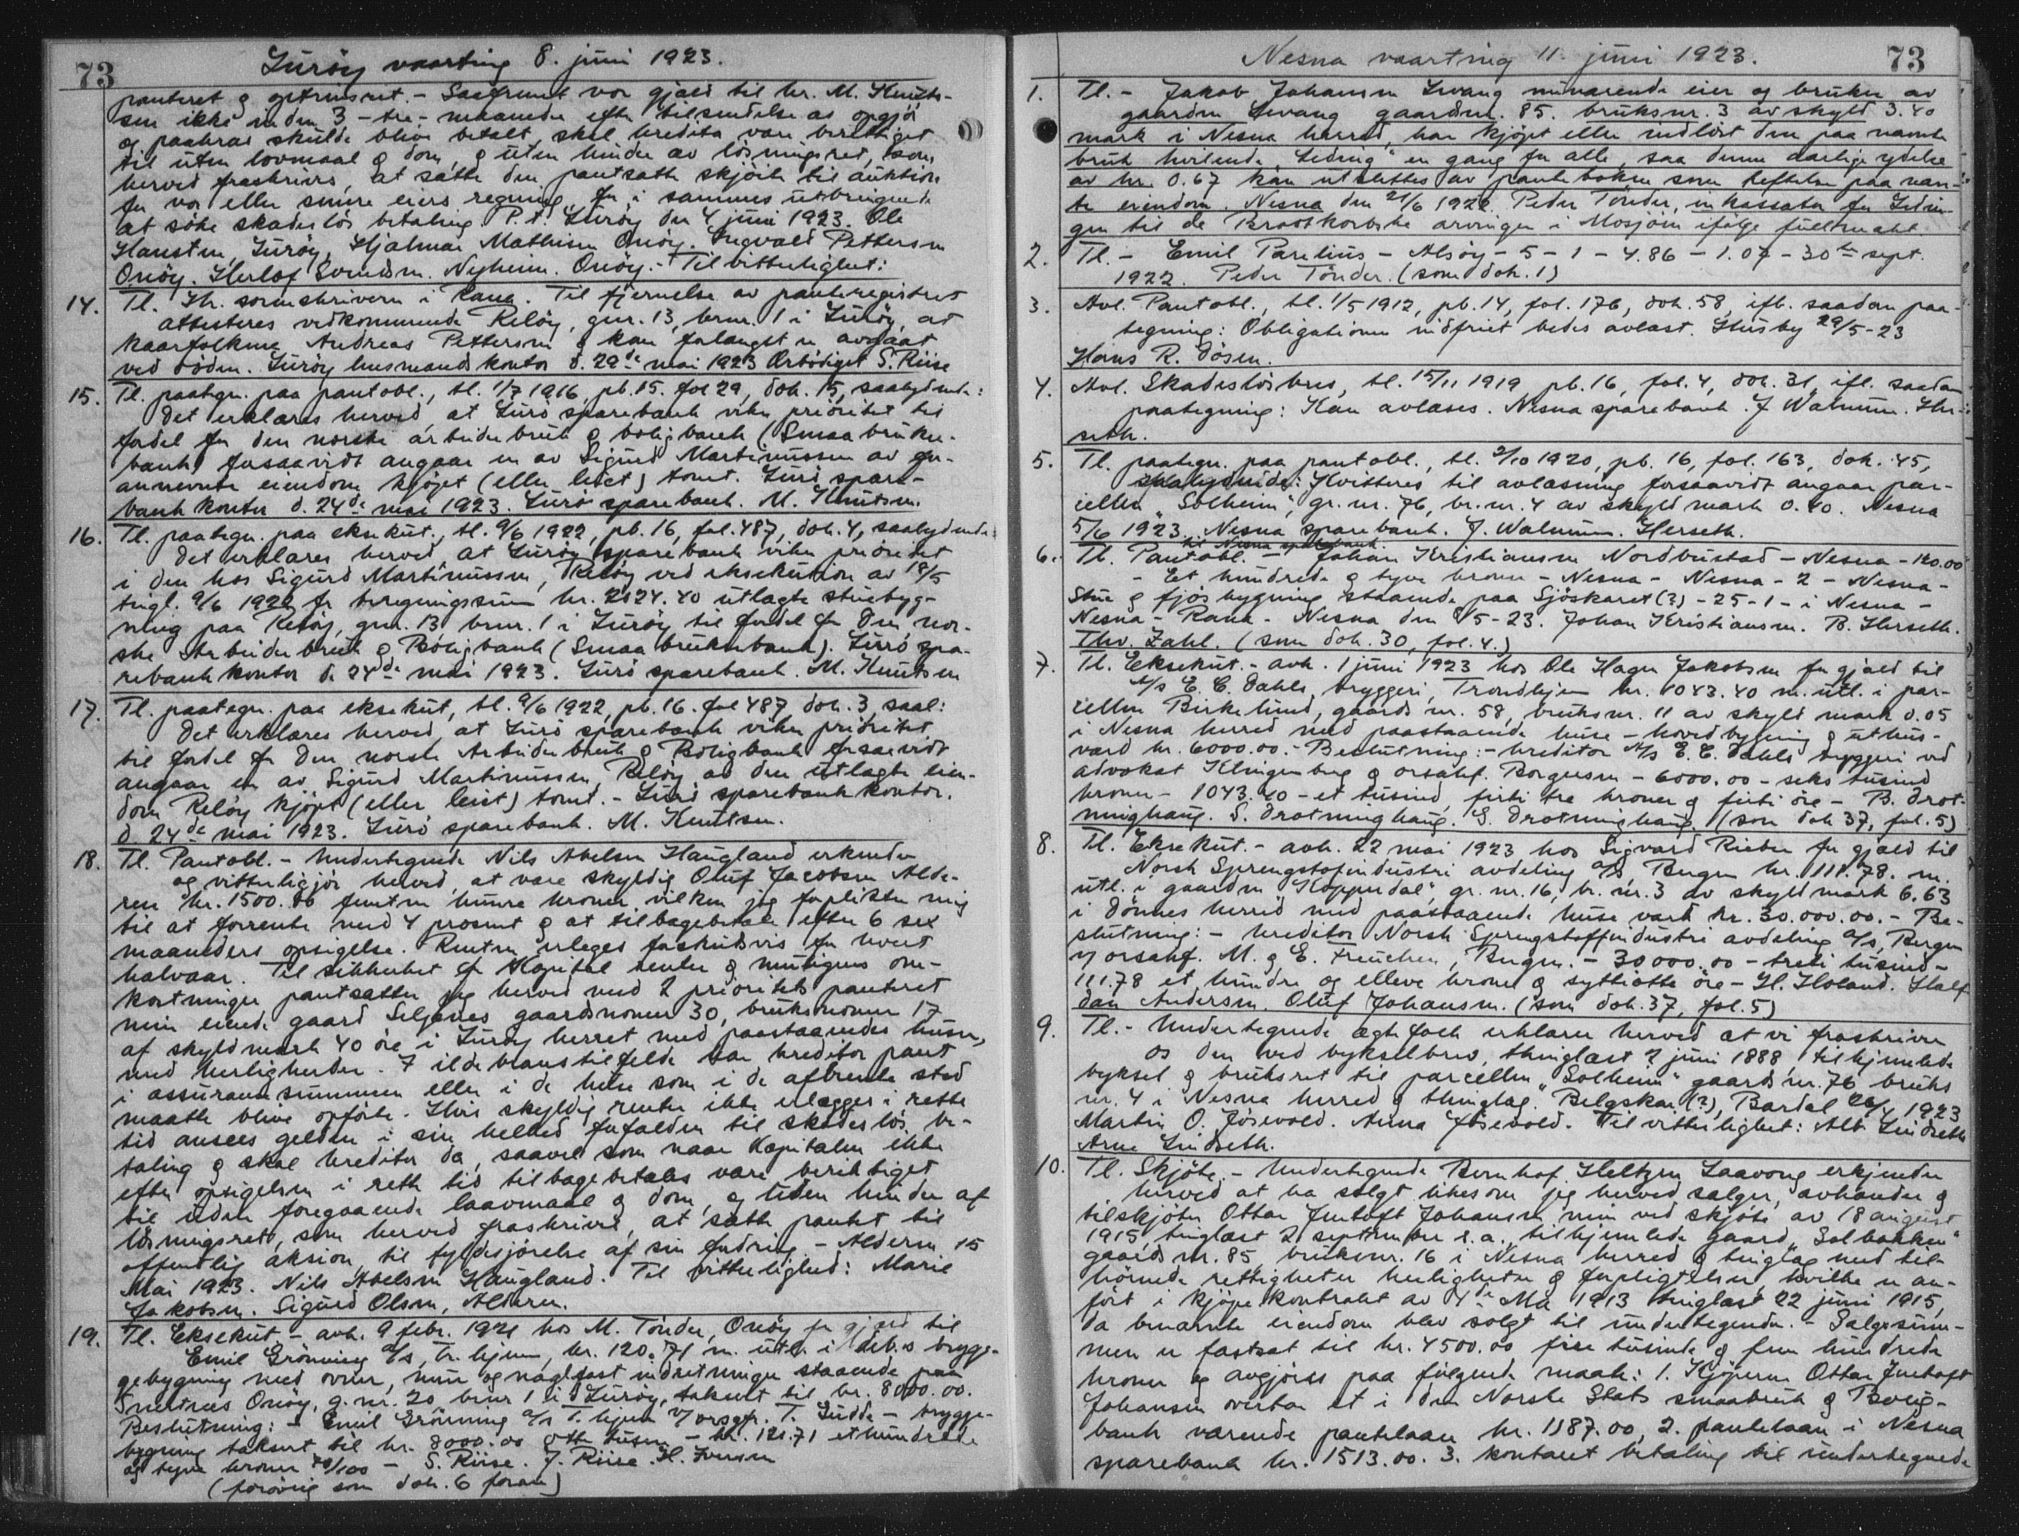 73
Lurøy vaarting 8. juni 1923.
panteret og gitt Saafremt vor gjæld til hr. M. Knut-
sen ikke inden 3 - tre - maaneder efter tilsendelse av opgjør
og paakrav skulde blive betalt, skal kreditor være berettiget
til uten lovmaal og dom, og uten hinder av løsningsret, som
herved fraskrives, at sætte den pantsatte skjøite til auktion
for vor eller senere eiers regning, for i sammes utbringende
at søke skadesløs betaling P.t. Lurøy den 4 juni 1923. Ole
Hansten, Lurøy, Hjalmar Mathisen Onøy. Ingvald Pettersen
Onøy. Herlof Svendsen. Nyheim. Onøy. - Til vitterlighet:
14. Tl. Hr. sorenskriveren i Rana. Til fjernelse av panteregistret
attesteres vedkommende Reløy, gnr. 13, brnr. 1 i Lurøy, at
kaarfolkene Andreas Pettersen og kone forlængst er avgaat
ved døden. Lurøy lensmandskontor d. 29de mai 1923 Ærbødigst S. Riise
15. Tl. paategn. paa pantobl., tl. 1/7 1916, pb. 15. fol 29, dok. 15, saalydende:
Det erklæres herved at Lurø sparebank viker prioritet til
fordel for den norske arbeiderbruk og boligbank (Smaabruker-
bank) forsaavidt angaar en av Sigurd Martinussen av
eiendom kjøpt (eller leiet) tomt. Lurø spare-
bank kontor d. 24de mai 1923. Lurø sparebank. M. Knutsen.
16. Tl. paategn. paa eksekut., tl. 9/6 1922, pb. 16, fol. 487, dok. 4, saalydende:
Det erklæres herved at Lurøy sparebank viker prioritet
i den hos Sigurd Martinussen, Reløy ved eksekution av 18/5
tingl. 9/6 1922 for kr. 2124.40 utlagte stuebyg-
ning paa Reløy, gnr. 13 brnr. 1 i Lurøy til fordel for Den nor-
ske Arbeiderbruk og Boligbank (Smaabrukerbank). Lurø spa-
rebank kontor d. 24de mai 1923. Lurø sparebank. M. Knutsen
17. Tl. paategn. paa eksekut, tl. 9/6 1922, pb. 16. fol 487, dok. 3, saal:
Det erklæres herved at Lurø sparebank viker prioritet
til fordel for Den norske Arbeiderbruk og Boligbank forsaavidt
angaar en av Sigurd Martinussen Reløy av den utlagte eien-
dom Reløy kjøpt (eller leiet) tomt. - Lurø sparebank kontor.
d. 24de mai 1923. Lurø sparebank. M. Knutsen.
18. Tl. Pantobl. - Undertegnede Nils Abelsen Haugland erkjender
og vitterligjør herved, at være skyldig Oluf Jacobsen Alde-
ren kr. 1500.00 femten hundre kroner vilken jeg forplikter mig
til at forrente med 4 prosent og at tilbagebetale efter 6 sex
maaneders opsigelse. Renten erlegges forskudsvis for hvert
halvaar. Til sikkerhet for Kapital renter og muligens om-
kostninger pantsætter jeg herved med 2 prioritets panteret
min eiende gaard Seljenes gaardsnomer 30, bruksnomer 17
af skyldmark 40 øre i Lurøy herret med paastaaendes huser,
med herligheder. I ildebranstilfelde har kreditor pant
i assuransesummen eller i de huse som i de afbrente sted
maatte blive opførte. Hvis skyldig renter ikke erlægges i rette
tid ansees gelden i sin helhed forfalden til skadesløs be-
taling og skal kreditor da, saavel som naar Kapitalen ikke
efter opsigelsen i rette tid tilbagebetales være beriktiget
til uden foregaaende laavmaal og dom, og uden hinder af
løsningsrett, som herved fraskrives, at sætte pantet til
offentlig aksion til fyldesjørelse af sin fodring. - Alderen 15
Mai 1923. Nils Abelsen Haugland. Til vitterlighed: Marie
Jakobsen. Sigurd Olsen, Alderen.
19. Tl. Eksekut. - avh. 9 febr. 1921 hos M. Tønder, Onøy for gjæld til
Emil Grønning A/S, Tr.hjem, kr. 120.71 m. utl. i deb.s brygge-
gebygning med ovner, mur og naglfast indretninger staaende paa
Onøy, g.nr. 20 brnr 1 i Lurøy, taksert til kr. 8000.00.
Beslutning: - Emil Grønning A/S T.hjem v/ orsgf. T. Gudde - brygge-
bygning taksert til kr. 8000.00 otte tusen - kr. 120.71 ethundrede
og tyve kroner 71/100 - S. Riise. J. Riise. H. Iversen
(forøvrig som dok. 6 foran)
Nesna vaarting 11. juni 1923.
73
1. Tl. - Jakob Johansen Levang nuværende eier og bruker av
gaarden Levang gaardsnr. 85. bruksnr. 3 av skyld 3.40
mark i Nesna herred, har kjøpt eller indløst den paa nævnte
bruk hvilende "Leding" en gang for alle, saa denne aarlige ydelse
av kr. 0.67 kan utslettes av pantboken som heftelse paa næv-
te eiendom. Nesna den 21/6 1922. Peder Tønder, inkassator for Ledin-
gen til de Brodtkorbske arvinger i Mosjøen ifølge fuldmakt
2. Tl. - Emil Parelius - Alsøy - 5 - 1 - 4.86 - 1.07 - 30te sept.
1922. Peder Tønder. (som dok. 1)
3. Avl. Pantobl., tl. 1/5 1912, pb. 14, fol. 176, dok. 58, ifl. saadan paa-
tegning: Obligationen indfriet bedes avlæst. Husby 29/5-23
Hans R. Døsen.
4. Avl. Skadesløsbrev, tl. 15/11 1919 pb. 16, fol. 4, dok. 31, ifl. saadan
paategning: Kan avlæses. Nesna sparebank. J Walnum. Her-
seth.
5. Tl. paategn. paa pantobl., tl. 9/10 1920, pb. 16, fol. 163, dok. 45,
saalydende: Kvitteres til avlæsning forsaavidt angaar par-
cellen "Solheim", gr.nr. 76, br.nr. 4 av skyld mark 0.40. Nesna
5/6 1923. Nesna sparebank. J. Walnum. Herseth.
til Nesna sparebank
6. Tl. Pantobl. - Johan Kristiansen Nordbustad - Nesna - 120.00
- Et hundrede og tyve kroner - Nesna - Nesna - 2 - Nesna -
Stue og fjøsbygning staaende paa Sjøskaret(?) - 25 - 1 - i Nesna -
Nesna - Rana - Nesna den 8/5-23. Johan Kristiansen. B. Herseth.
Thv. Zahl. (som dok. 30, fol. 4.)
7. Tl. Eksekut. - avh. 1 juni 1923 hos Ole Hagen Jakobsen for gjæld til
A/S E. C. Dahls bryggeri, Trondhjem kr. 1043.40 m. utl. i par-
cellen Birkelund, gaards nr. 58, bruksnr. 11 av skyld mark 0.05
i Nesna herred med paastaaende huse - hovedbygning og uthus -
værd kr. 6000.00. - Beslutning: - kreditor A/S E. C. Dahls bryggeri ved
advokat Klingenberg og orsakf. Borgersen - 6000.00 - seks tusind
kroner - 1043.40 - et tusind, firti tre kroner og firti øre - B. Drot-
ninghaug. S. Drotninghaug. S. Drotninghaug. (som dok 37, fol. 5)
8. Tl. Eksekut. - avh. 22 mai 1923 hos Sigvard Rieber for gjæld til
Norsk Sprengstofindustri avdeling A/S Bergen kr. 111.78. m.
utl. i gaarden "Kopperdal", gr.nr. 16, br.nr. 3 av skyld mark 6.63
i Dønnes herred med paastaaende huse værd kr. 30.000.00. - Be-
slutning: - kreditor Norsk Sprengstoffindustri avdeling A/S, Bergen
v/ orsakf. M. og E. Freuchen, Bergen. - 30000.00 - tredi tusind -
111.78 et hundre og elleve kroner og syttiotte øre - H. Holand. Half-
dan Andersen. Oluf Johansen. (som dok. 37, fol. 5)
9. Tl. - Undertegnede ægtefolk erklærer herved at vi fraskriver
os den ved bykselbrev, thinglæst 2 juni 1888, tilhjemlede
byksel og bruksret til parcellen "Solheim" gaards nr. 76 bruks
nr. 4 i Nesna herred og thinglag. (?), Bardal 26/4 1923
Martin O. Jøsevold. Anna Jøsevold. Til vitterlighet: Alb. Lindseth
Arne Lindseth.
10. Tl. Skjøte. - Undertegnede Bernhof Heltzen Laavong erkjender
herved at ha solgt likesom jeg herved sælger, avhænder og
tilskjøter Ottar Jentoft Johansen min ved skjøte av 18 august
1915 tinglæst 2 september s.a. tilhjemlede gaard "Solbakken"
gaards nr. 85 bruksnr. 16 i Nesna herred og tinglag med til-
hørende rettigheter herligheter og forpligtelser hvilke er an-
ført i kjøpekontrakt av 4de Mai 1913 tinglæst 22 juni 1915,
da benævnte eiendom blev solgt til undertegnede. - Salgssum-
men er fastsat til kr. 4500.00 fire tusinde og fem hundrede
kroner og avgjøres paa følgende maate: 1. Kjøperen Ottar Jentoft
Johansen overtar et i Den Norske Stats smaabruk og Bolig-
bank værende pantelaan kr. 1187.00, 2. pantelaan i Nesna
sparebank kr. 1513.00. 3. kontant betaling til undertegnede